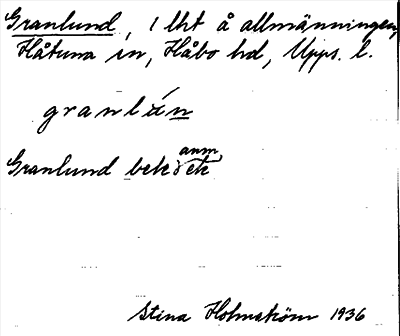 Granlund, 1 lht å allmänningen,
Håtuna sn, Håbo hd, Upps. l.
granlán
Granlund bek anm ek
Stina Holmström 1936